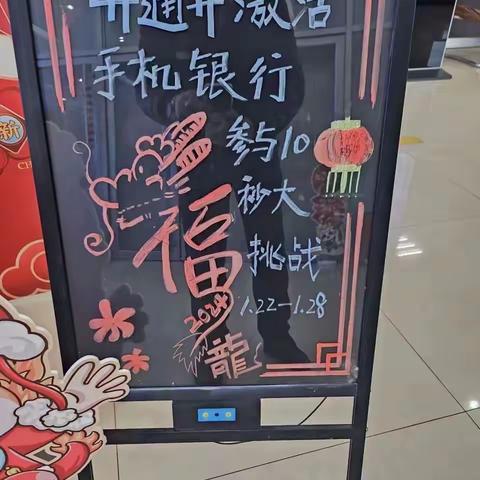 开通并激活
手机银行
参与10
秒大
挑战
1.22-1.28
福
2024
龍
新
CH